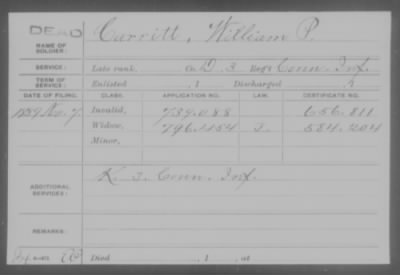 DEAD
NAME OF SOLDIER: Carritt, William P.
SERVICE: Late rank, Co. D. 3 Reg't Conn. Inf.
TERM OF SERVICE: Enlisted , 1 Discharged , 1
DATE OF FILING. CLASS. APPLICATION NO. LAW. CERTIFICATE NO.
Nov. 7. Invalid, 739.088 656.811
Widow, 796.454 584.204
Minor,
ADDITIONAL SERVICES: K. 3. Conn. Inf.
REMARKS:
Died , 1 , at